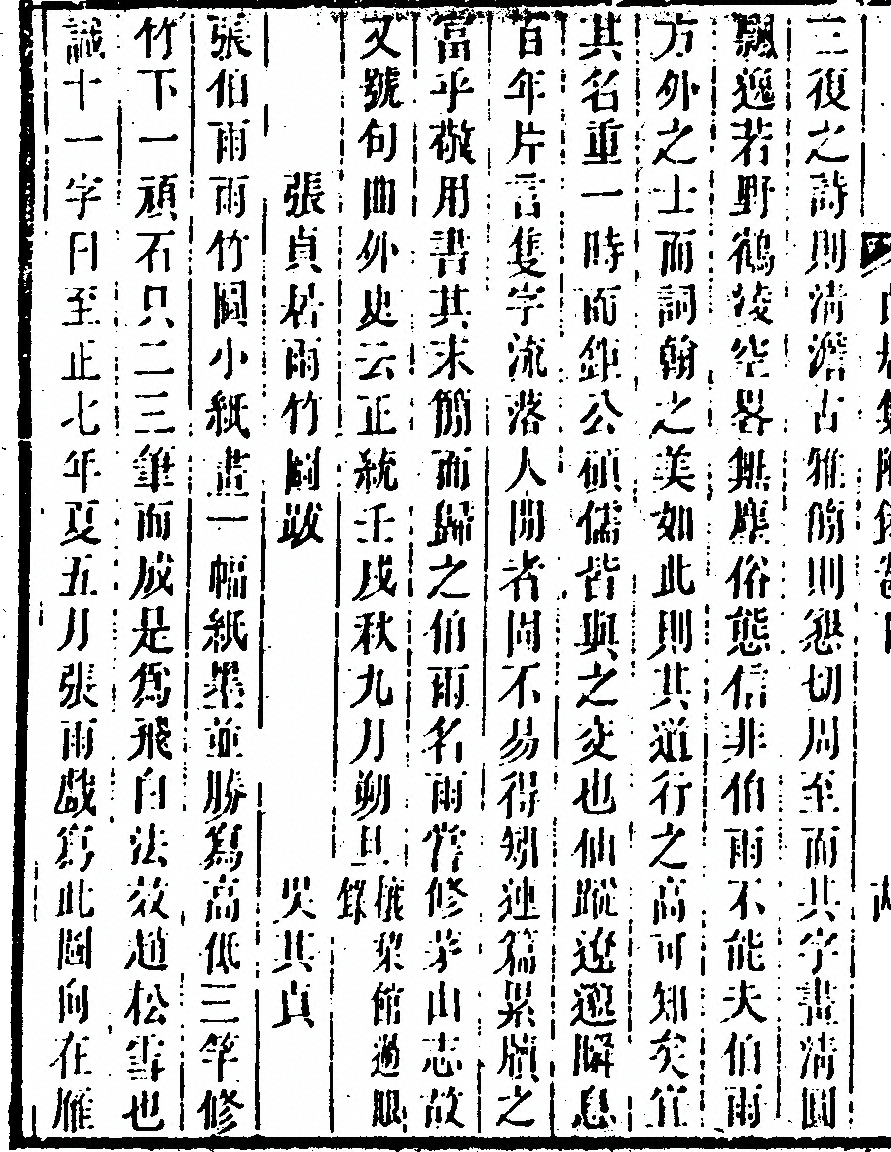 三復之詩則清澹古雅簡則懇切周至而其字畫清圓
飄逸若野鶴凌空畧無塵俗態信非伯雨不能夫伯雨
方外之士而詞翰之美如此則其道行之高可知矣宜
其名重一時而鉅公碩儒皆與之交也仙蹤遼邈瞬息
百年片言隻字流落人間者固不易得矧連篇累牘之
富乎敬用書其末簡而歸之伯雨名雨嘗修茅山志故
又號句曲外史云正統壬戌秋九月朔旦
檇菜館過眼
錄
張貞居雨竹圖跋
吳其貞
張伯雨雨竹圖小紙畫一幅紙墨並勝寫高低三竿修
竹下一頑石只二三筆而成是為飛白法效趙松雪也
識十一字曰至正七年夏五月張雨戲寫此圖向在雁